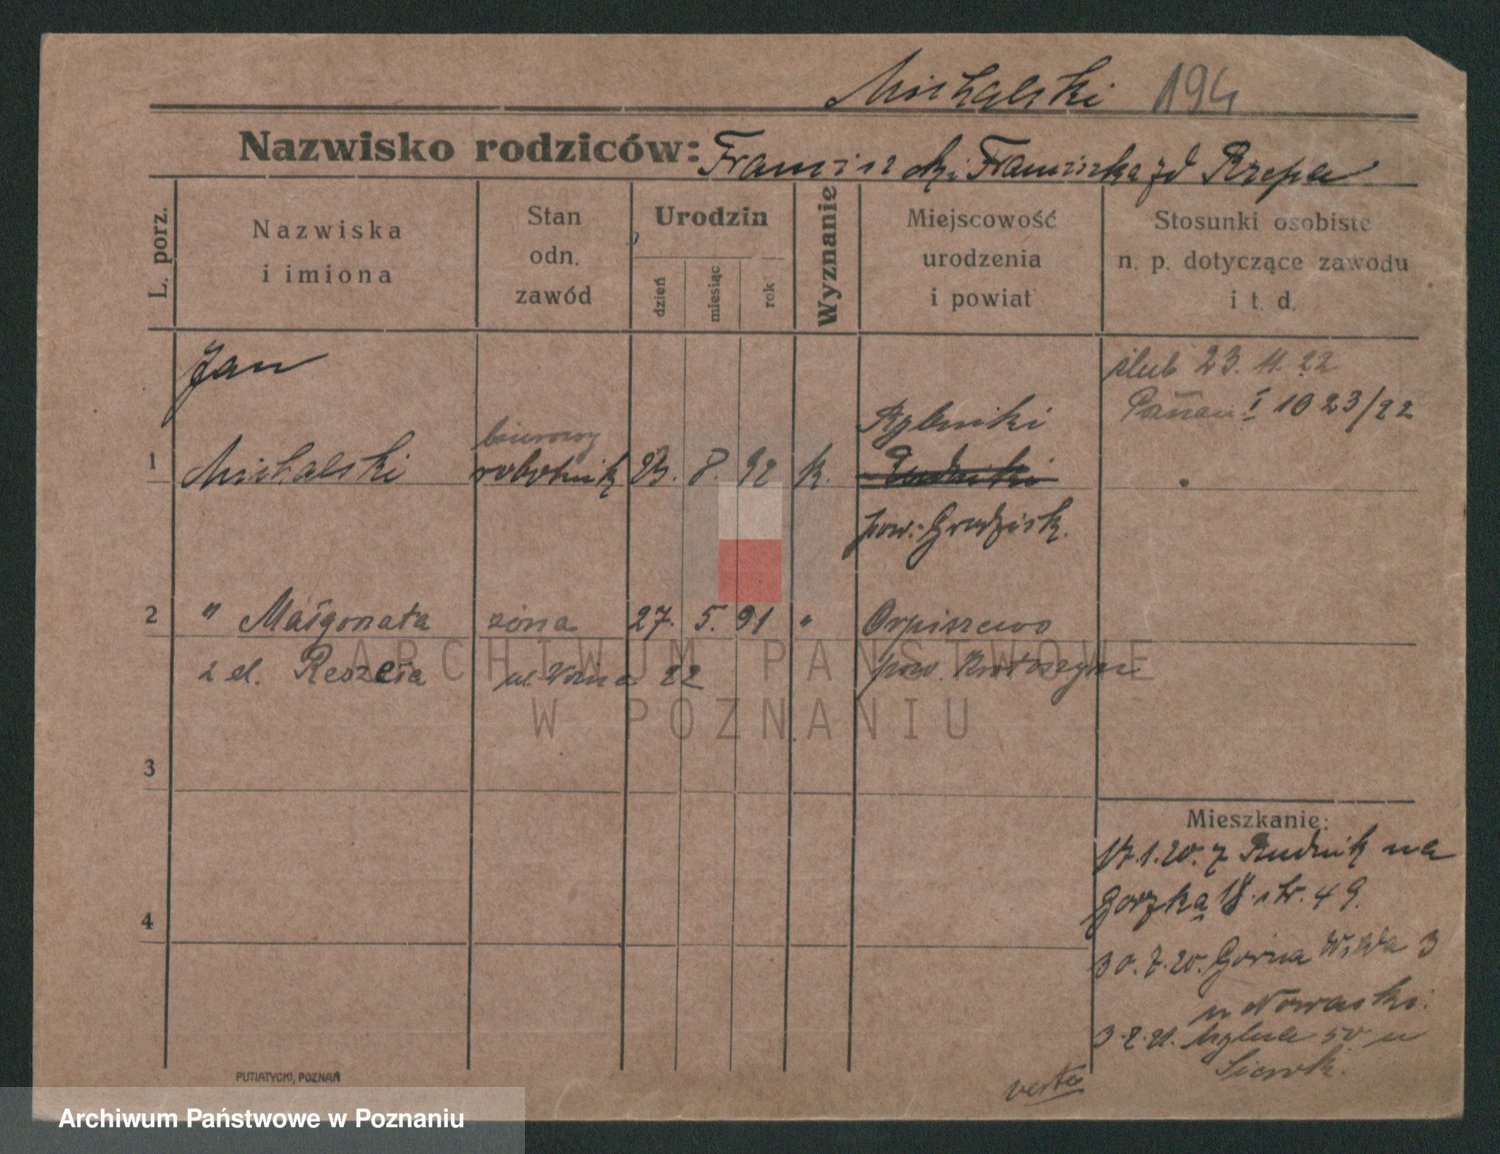 Michalski 194
Nazwisko rodziców: Franciszek i Franciszka zd Rzepa
L. porz.
Nazwiska
i imiona
Stan
odn.
zawód
Urodzin
dzień
miesiąc
rok
Wyznanie
Miejscowość
urodzenia
i powiat
Stosunki osobiste
n. p. dotyczące zawodu
i t. d.
Jan
ślub 23. 11. 22
Poznań I 1023/22
Rybniki
biurowy
1 Michalski robotnik 23. 8. 92 k. Rudniki
pow. Grodzisk.
2 " Małgorzata żona 27. 5. 91 " Orpiszewo
z d. Reszela ul. 22 pow. Krotoszyn
ARCHIWUM PAŃSTWOWE
W POZNANIU
3
Mieszkanie:
17.1.20. z Rudnik na
4
30.7.20. Górna Wilda 3
u Nowacki.
3.2.21. 50 u
verte
PUTIATYCKI, POZNAŃ
Archiwum Państwowe w Poznaniu